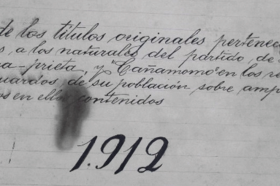 de los titulos originales pertenec
s, a los naturales del partido de
a-prieta, y Cañamomo en los re
uardos de su población sobre amp
os en ellos contenidos
1.912